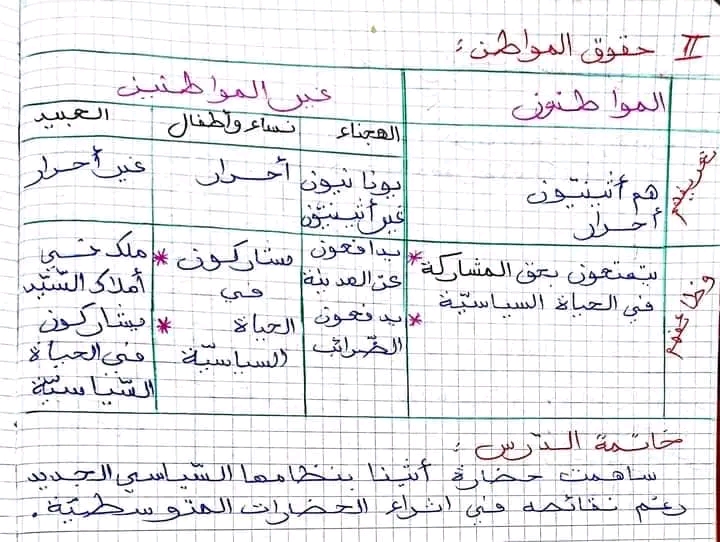 II حقوق المواطن:
المواطنون
غير المواطنين
الهجناء
نساء وأطفال
العبيد
تعريفهم
هم أثينيّون
أحرار
يونانيون
غير أثينيّون
أحرار
غير أحرار
يتمتعون بحق المشاركة
في الحياة السياسيّة
* يدافعون
عن المدينة
* يدفعون
الضّرائب
مشاركون
في
الحياة
السياسيّة
* ملك في
أملاك السّيّد
* يشاركون
في الحياة
السّياسيّة
خاتمة الدّرس:
ساهمت حضارة أثينا بنظامها السّياسي الجديد
رغم نقائصه في اثراء الحضارات المتوسّطيّة.